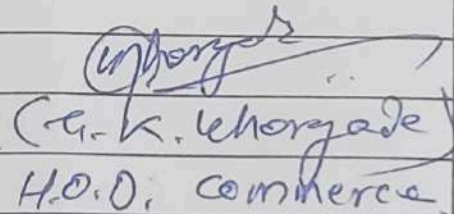 (G. K. Khorgade)
H.O.D. Commerce